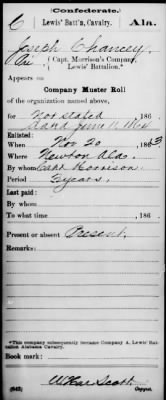 Confederate.
C Lewis' Batt'n, Cavalry. Ala.
Joseph Chancey
Pvt { Capt. Morrison's Company, Lewis' Battalion.*
Appears on
Company Muster Roll
of the organization named above,
for Not stated, 186 .
dated June 11 1864
Enlisted:
When Nov 20, 1863
Where Newton Ala.
By whom Capt Morrison
Period 3 years
Last paid:
By whom
To what time , 186 .
Present or absent Present
Remarks:
*This company subsequently became Company A, Lewis' Battalion Alabama Cavalry.
Book mark:
(642)
Copyist.